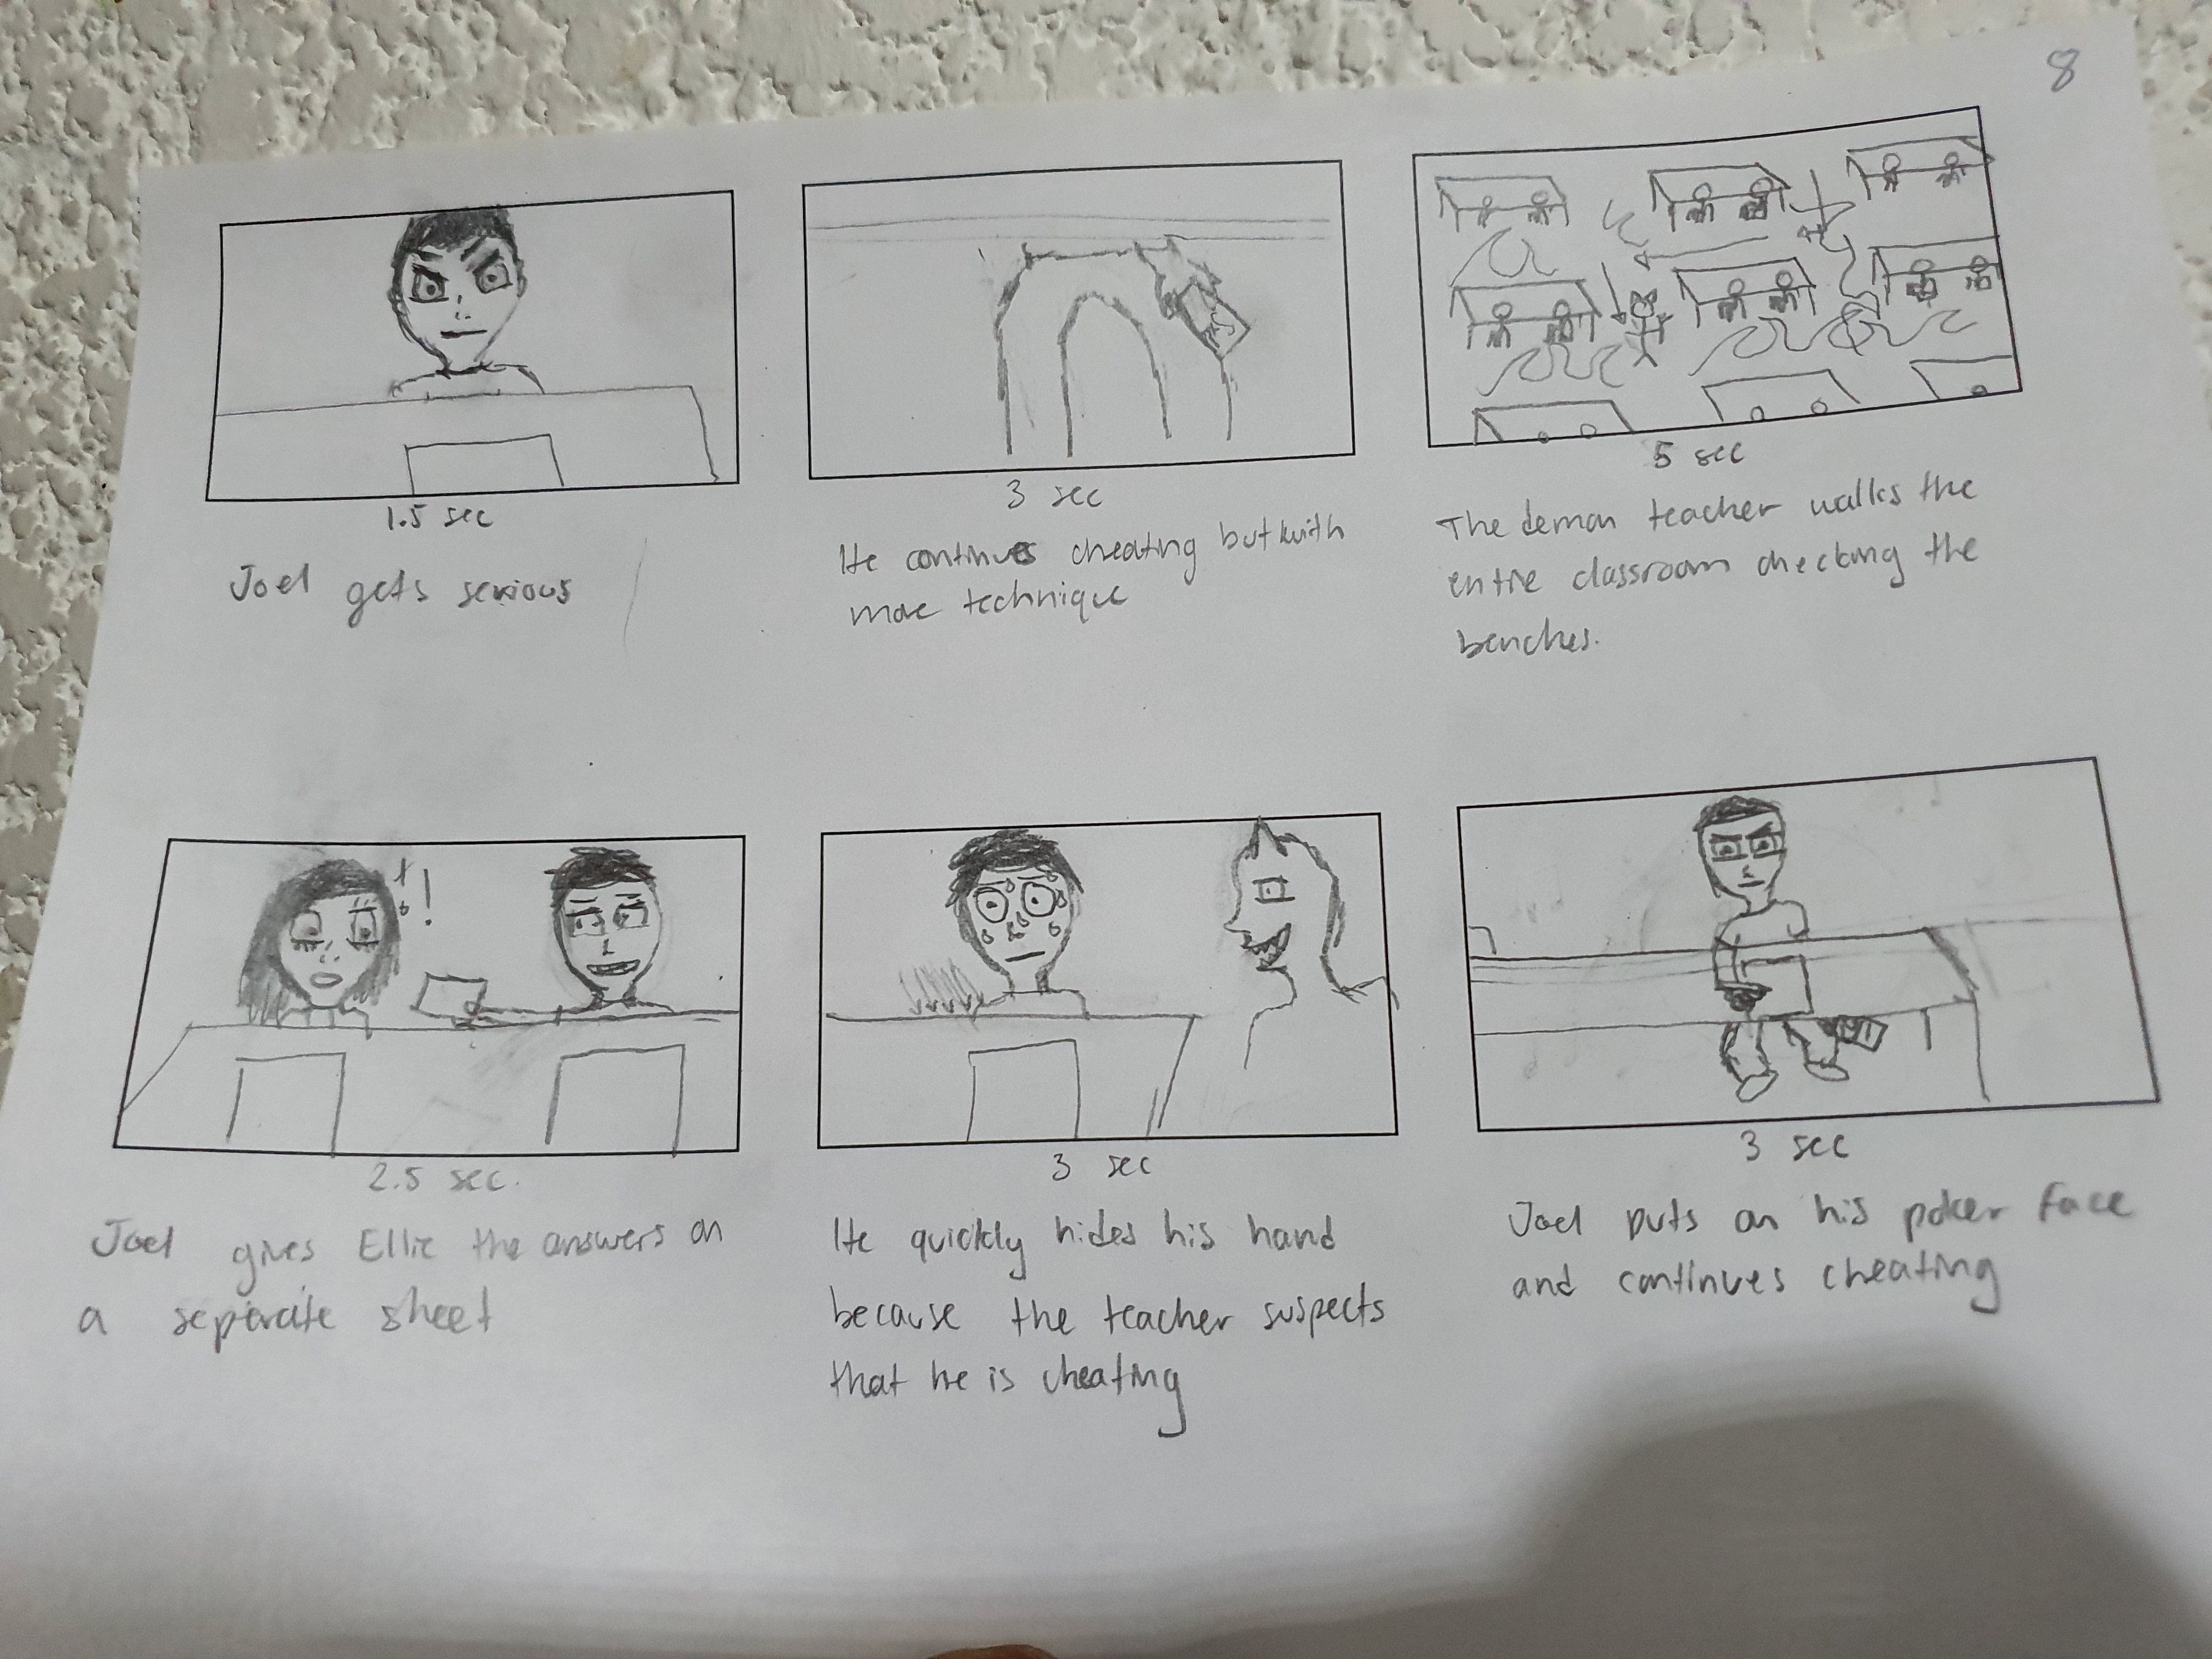 8
1.5 sec
Joel gets serious
3 sec
He continues cheating but with
more technique
5 sec
The demon teacher walks the
entire classroom checking the
benches.
!
2.5 sec.
Joel gives Ellie the answers on
a seperate sheet
3 sec
He quickly hides his hand
because the teacher suspects
that he is cheating
3 sec
Joel puts on his poker face
and continues cheating